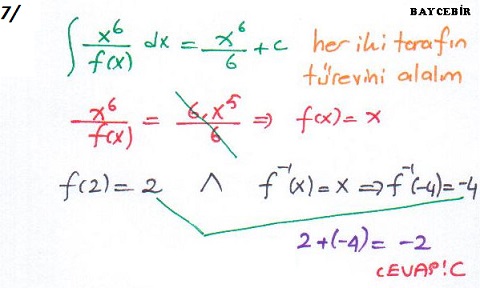 7/ BAYCEBİR
∫ x⁶/f(x) dx = x⁶/6 + c her iki tarafın
türevini alalım
x⁶/f(x) = 6.x⁵/6 ⇒ f(x) = x
f(2) = 2 ∧ f⁻¹(x) = x ⇒ f⁻¹(-4) = -4
2+(-4) = -2
CEVAP:C